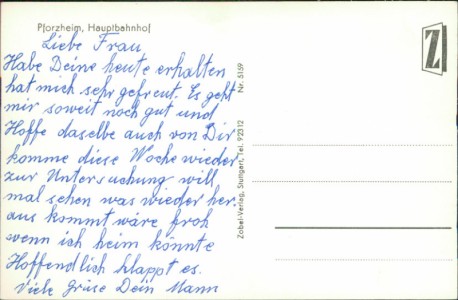 Pforzheim, Hauptbahnhof
Liebe Frau
Habe Deine heute erhalten
hat mich sehr gefreut. Es geht
mir soweit noch gut und
Hoffe daselbe auch von Dir
komme diese Woche wieder
zur Untersuchung will
mal sehen was wieder her.
aus kommt wäre froh
wenn ich heim könnte
Hoffendlich klappt es.
Viele Grüse Dein Mann
Zobel-Verlag, Stuttgart, Tel. 92312 Nr. 5159
Z